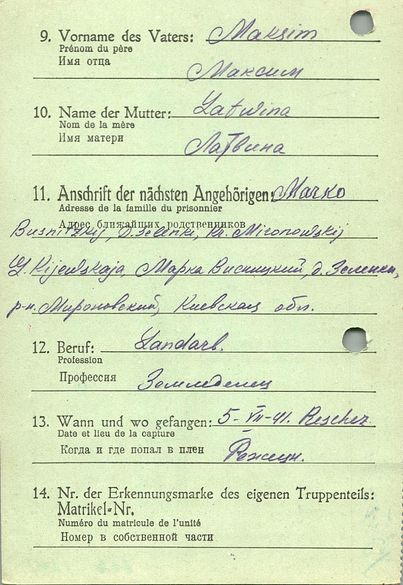 9. Vorname des Vaters: Maksim
Prénom du père
Имя отца
Максим
10. Name der Mutter: Latwina
Nom de la mère
Имя матери
Латвина
11. Anschrift der nächsten Angehörigen: Marko
Adresse de la famille du prisonnier
Адрес ближайших родственников
Busnitzkij, d. Selenki, kr. Mironowskij
G. Kijewskaja Марка Висницкий, д. Зеленки,
р-н. Мироновский, Киевская обл.
12. Beruf: Landarb.
Profession
Профессия Земледелец
13. Wann und wo gefangen: 5-VII-41.
Date et lieu de la capture
Когда и где попал в плен
14. Nr. der Erkennungsmarke des eigenen Truppenteils:
Matrikel-Nr.
Numéro du matricule de l'unité
Номер в собственной части